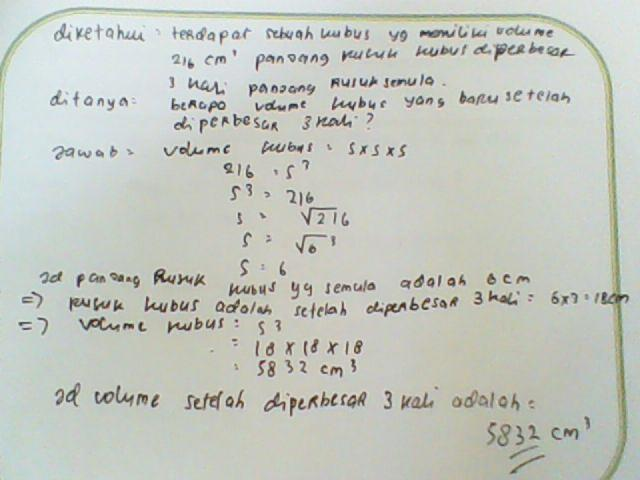 diketahui : terdapat sebuah kubus yg memiliki volume
216 cm³ panjang rusuk kubus diperbesar
3 kali panjang rusuk semula.
ditanya : berapa volume kubus yang baru setelah
diperbesar 3 kali ?
Jawab = volume kubus = s x s x s
216 = s³
s³ = 216
s = √216
s = √6³
s = 6
Jd panjang Rusuk kubus yg semula adalah 6 cm
=> rusuk kubus adalah setelah diperbesar 3 kali = 6x3 = 18cm
=> volume kubus = s³
= 18 x 18 x 18
= 5832 cm³
Jd volume setelah diperbesar 3 kali adalah =
5832 cm³